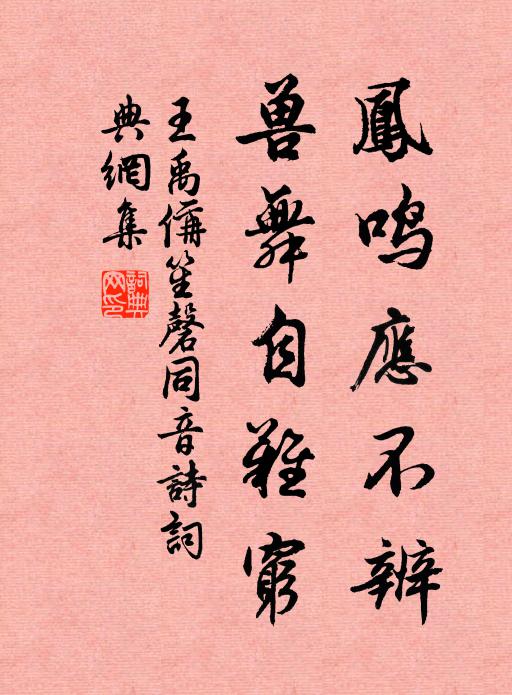 鳳鸣應不辨
兽舞自難窮
王禹偁笙磬同音詩詞
典網集
詞典
网印